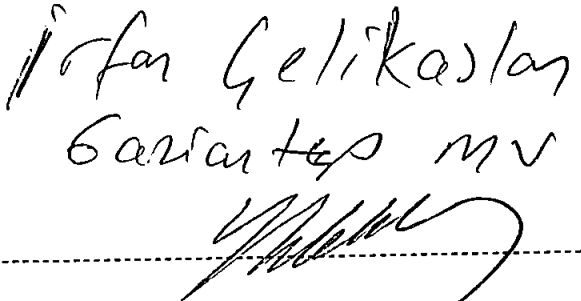 İrfan Çelikaslan
Gaziantep MV